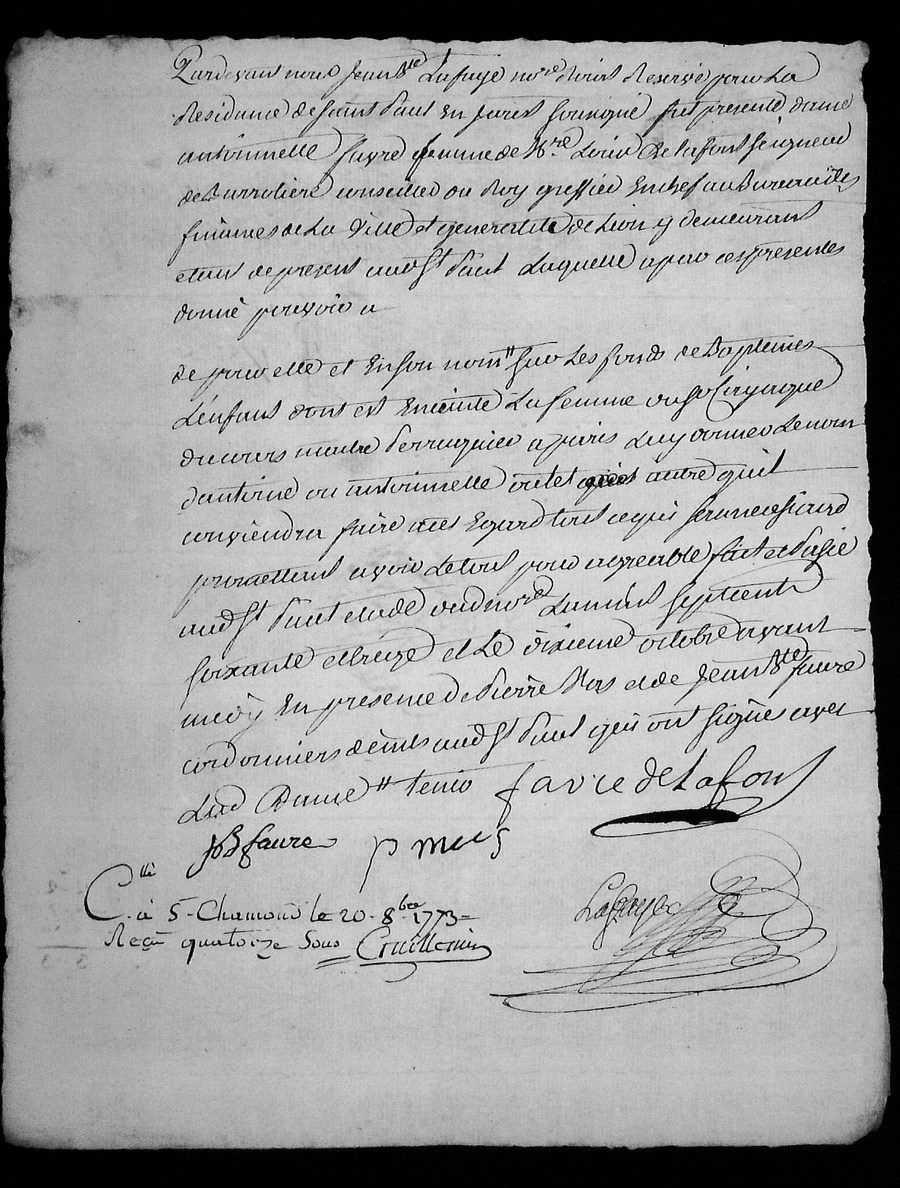 Pardevant nous Jean Bte Lafaye nore Roial Reservé pour La
Residance de Saint Paul En Jarest Soussigné fut presente dame
antoinnelle favre femme de Mre Louis De Lafont Seigneur
de conseiller du Roy greffier En chef au Bureau des
finances de La Ville et generalité de Lion y demeurant
etant de present aud St Paul Laquelle a par ces presentes
donné pouvoir a
de pour elle et En son nom sur Les fonds de Baptemes
L'enfant dont est Enceinte La femme du Sr
maitre Perruquier a paris Luy donner Le nom
d'antoine ou antoinnelle ou tel autre qu'il
conviendra faire a cet Egard tout ce qui Sera necessaire
promettant avoir Le tout pour agreable fait et Passé
aud St Paul etude dud nore L'an mil Sept cent
soixante et treize et Le dixieme octobre avant
midy En presence de Pierre et de Jean Bte faure
cordonniers demts aud St Paul qui ont Signé avec
Lad Dame
favre de Lafont
JB faure p
Lafaye
C.lé à St Chamond le 20 8bre 1773
Reçu quatorze Sous